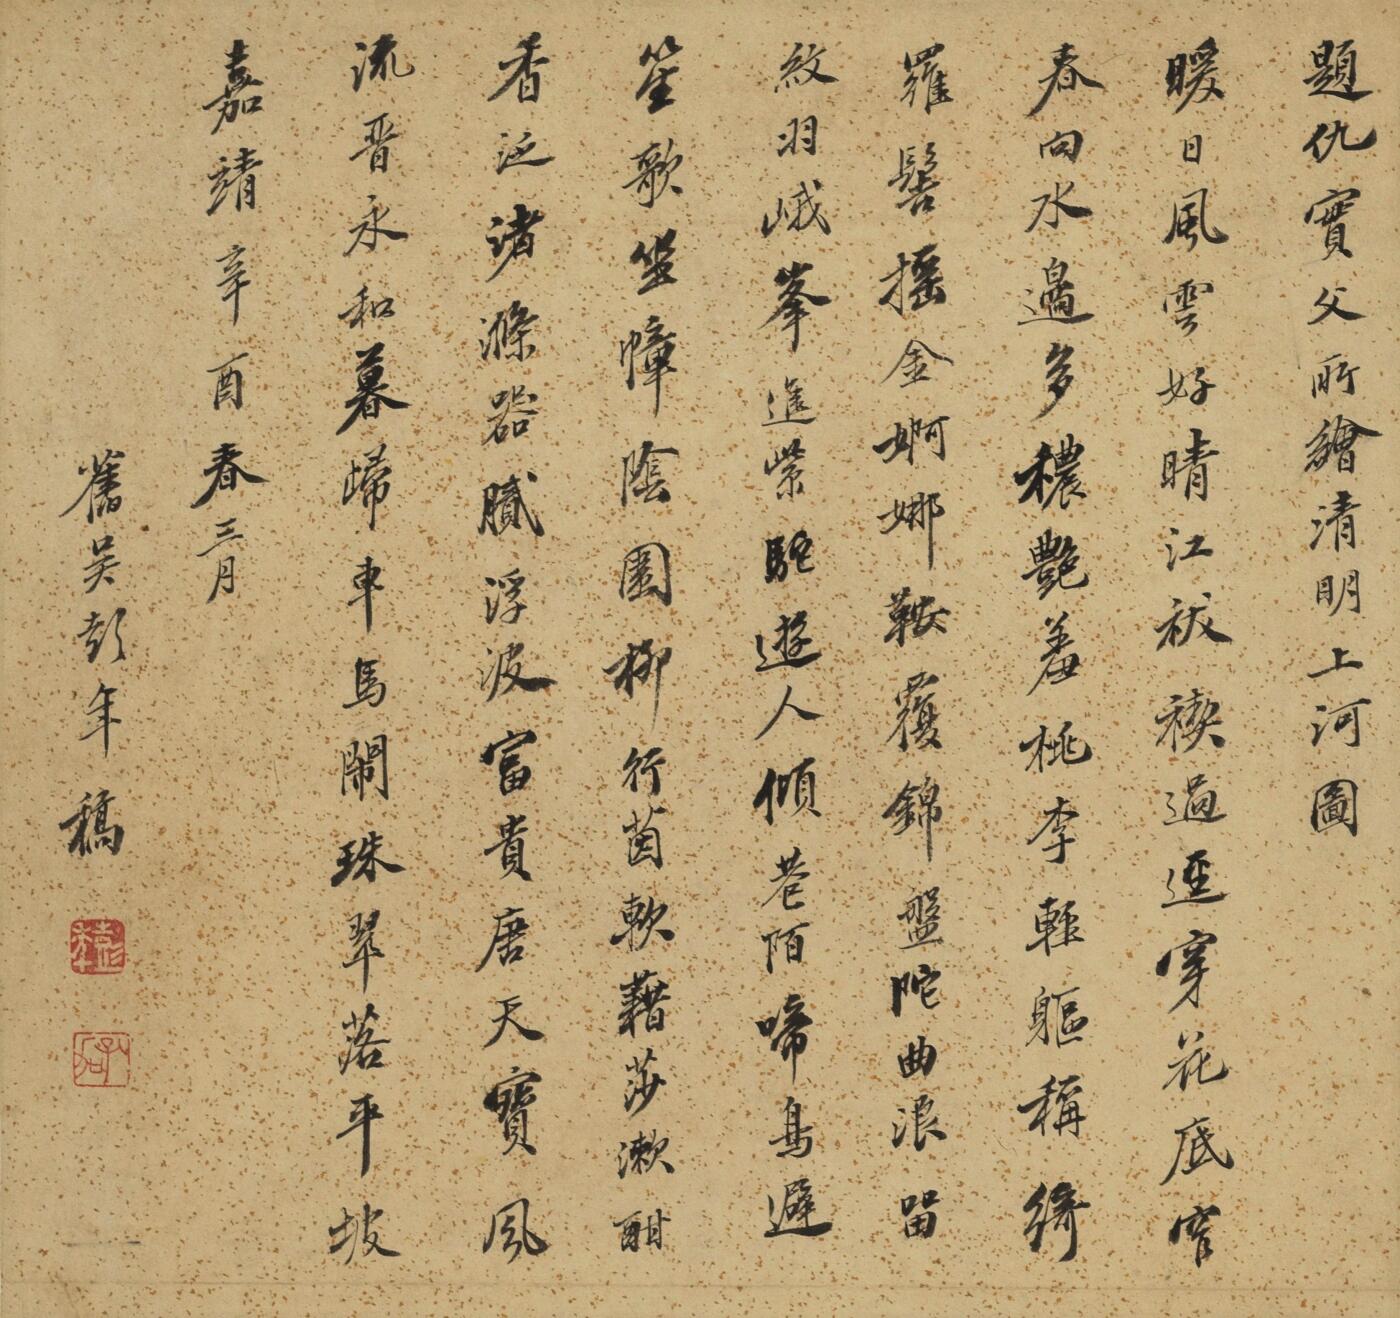 題仇實父所繪清明上河圖
暖日風雲好晴江祓禊過逕穿花底窄
春向水邊多穠艷羞桃李輕軀稱綺
羅髻搖金婀娜鞍覆錦盤陀曲浪留
紋羽峨峯進紫駝遊人傾巷陌啼鳥避
笙歌坐幛陰園柳行茵軟藉莎漱酣
香泛渚滌器膩浮波富貴唐天寶風
流晉永和暮歸車馬鬧珠翠落平坡
嘉靖辛酉春三月
舊吳彭年稿